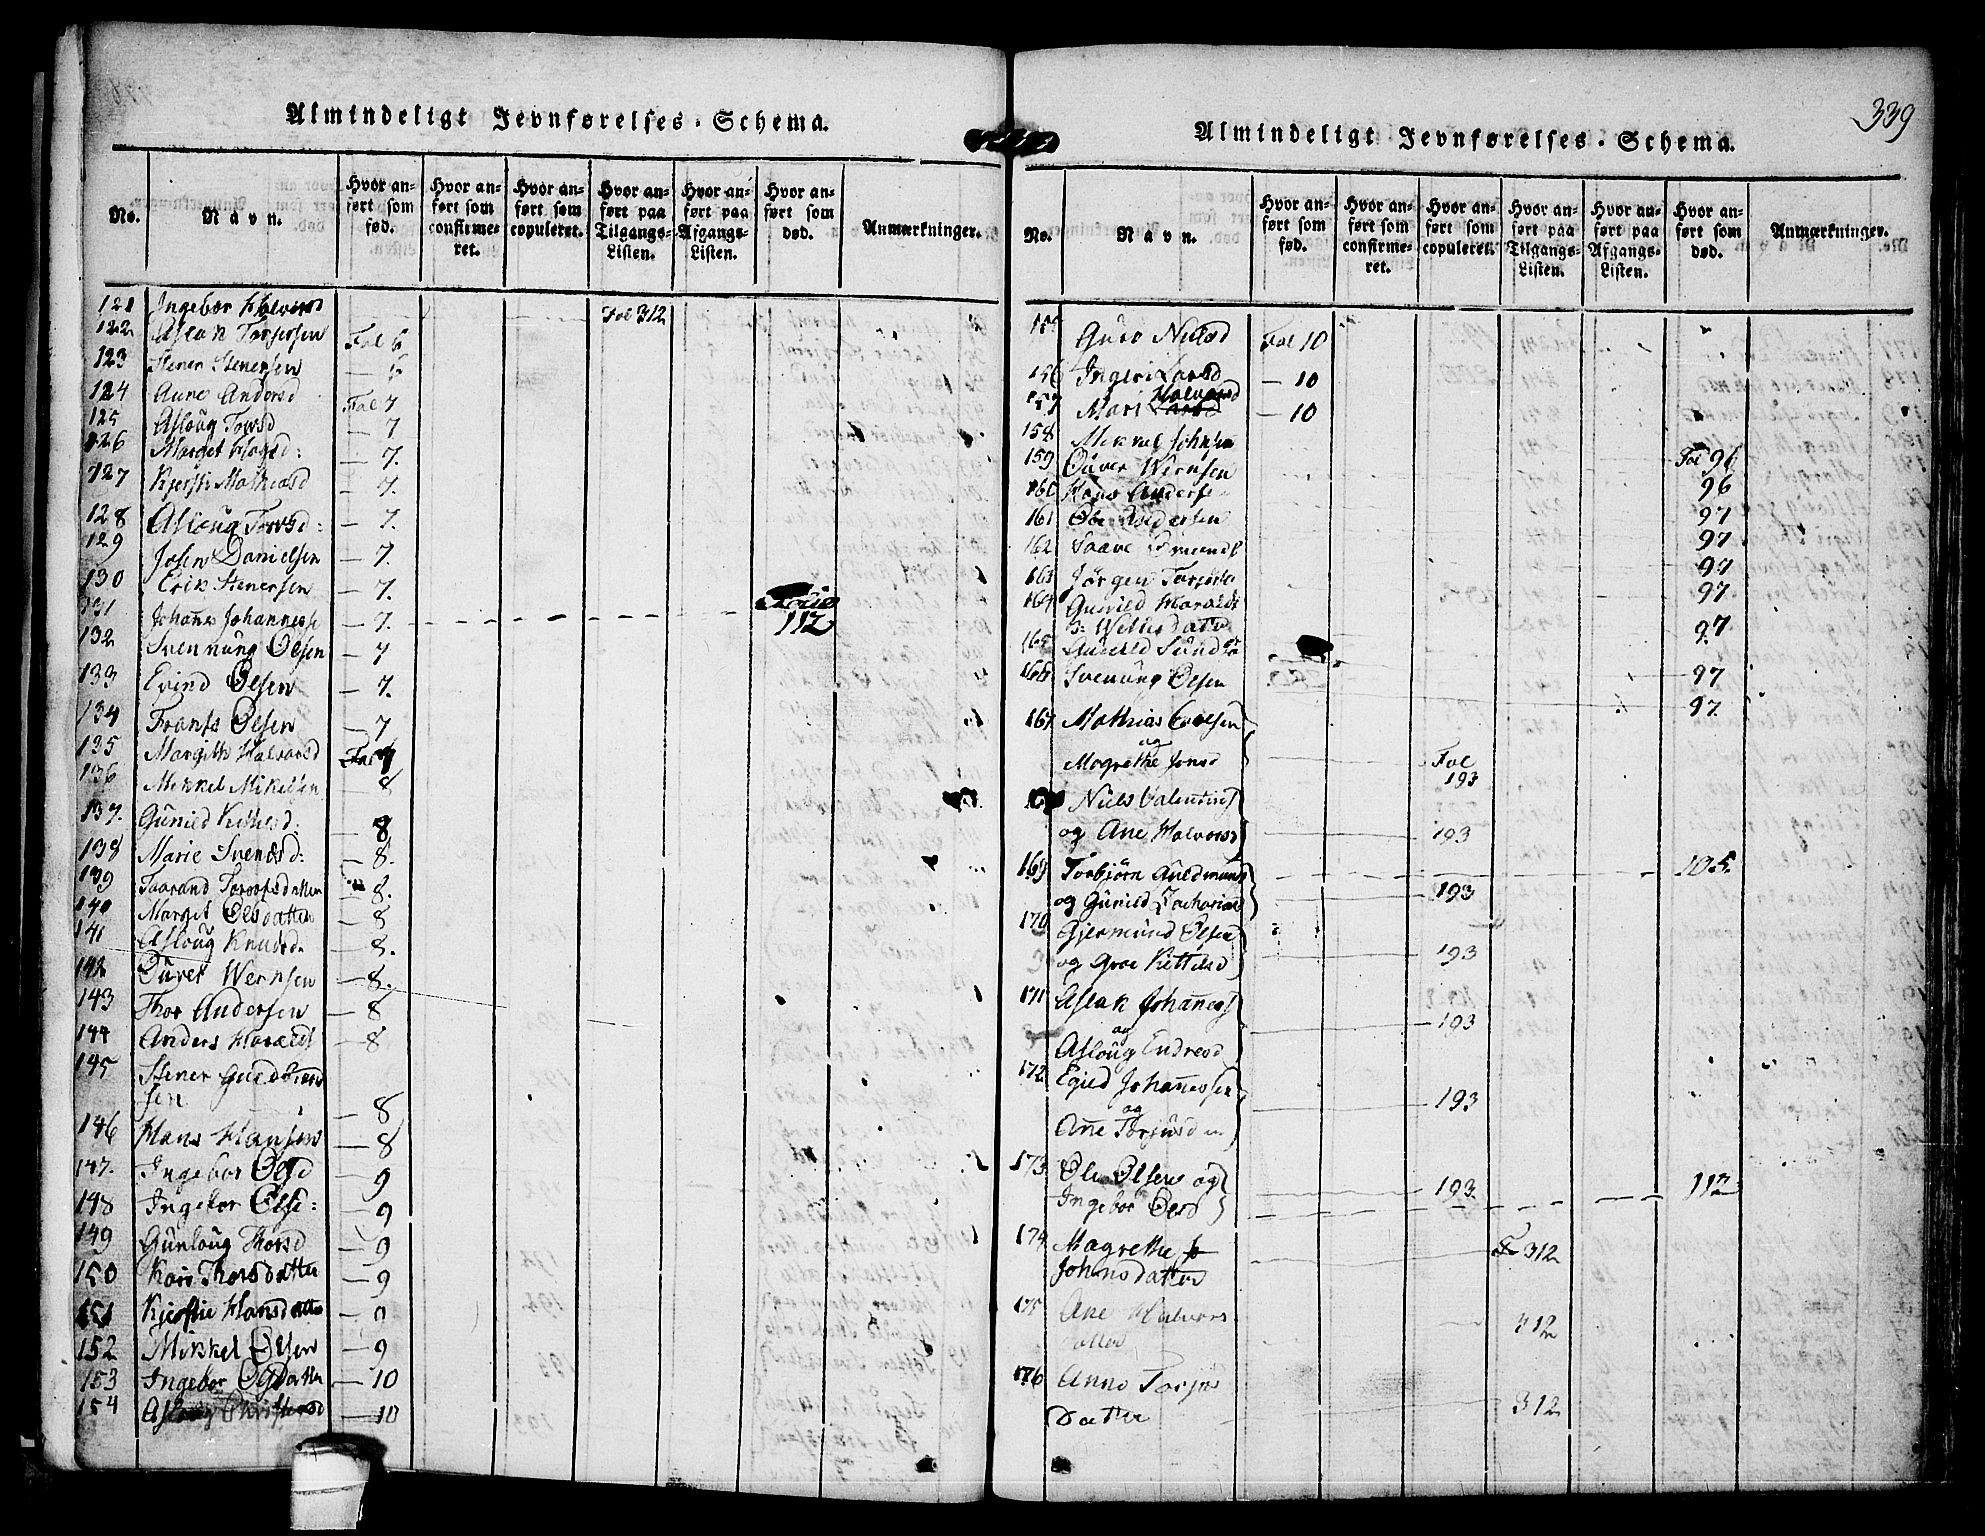 Almindeligt Jevnførelses-Schema.
No. Navn. Hvor anført som fød. Hvor anført som confirmeret. Hvor anført som copuleret. Hvor anført paa Tilgangs-Listen. Hvor anført paa Afgangs-Listen. Hvor anført som død. Anmærkninger.
121 Ingebor Halvorsd Fol 312
122 Aslak Torjersen Fol 6
123 Stener Stenersen — 6
124 Aune Andersd Fol 7
125 Asloug Torsd — 7
126 Marget Hogsd: — 7.
127 Kjersti Mathiasd — 7.
128 Asloug Torsd: — 7.
129 Josen Danielsen — 7.
130 Erik Stenersen — 7.
131 Johanes Johannesse — 7. 112
132 Svennung Olsen — 7
133 Evind Olsen — 7.
134 Frants Olsen — 7
135 Margith Halvorsd Fol 7
136 Mikkel Mikelsen — 8
137. Gunild Kittelsd. — 8
138 Marie Svendsd: — 8.
139 Taarand Toroofsdatter — 8.
140 Margit Olsdatter — 8
141 Asloug Knudsd. — 8.
142 Ouver Wernsen — 8.
143 Thor Andersen — 8
144 Anders Haralds — 8
145 Stener Guldbrand
sen — 8
146 Hans Hansen — 8
147. Ingebor Olsd — 9
148 Ingebor Olsd: — 9
149 Gunloug Thorsd — 9
150 Kari Thorsdatter — 9
151 Kjerstie Hansdatter — 9
152 Mikkel Olsen — 9
153 Ingebor Olsdatter — 10
154 Asloug Christensd — 10
339
Almindeligt Jevnførelses-Schema.
No. Navn. Hvor anført som fød. Hvor anført som confirmeret. Hvor anført som copuleret. Hvor anført paa Tilgangs-Listen. Hvor anført paa Afgangs-Listen. Hvor anført som død. Anmærkninger.
Guro Nielsd Fol 10
156 Ingeri Larsd — 10
Halvorsd
157 Mari Larsd — 10
158 Mikkel Johnsen Fol 96
159 Ouver Wernsen 96
160 Hans Anderse 97
161 Ole Andersen 97
162 Taave 97
163 Jørgen Torjers 97
164 Gunild Haralds
97
165 Gunild
166 Svenung Olsen 97
97
167 Mathias Evelsen
og
Magrethe Jonsd Fol
193
Niels Valentins
og Ane Halvorsd 193
169 Torbjørn Guldmuns 105.
og Gunild Zacharias 193
170 Gjermund Olsen
og Groe Kittelsd 193
171 Aslak Johaness
og 193
Asloug Endresd
172 Egild Johanessen
og 193
Ane Torjusd
173 Ole Olsen og 193 113
Ingebor Olsd
174 Magrethe Jo F 312
Johnsdatter
175 Ane Halvors
datter 312
176 Anne Torjus
datter 312